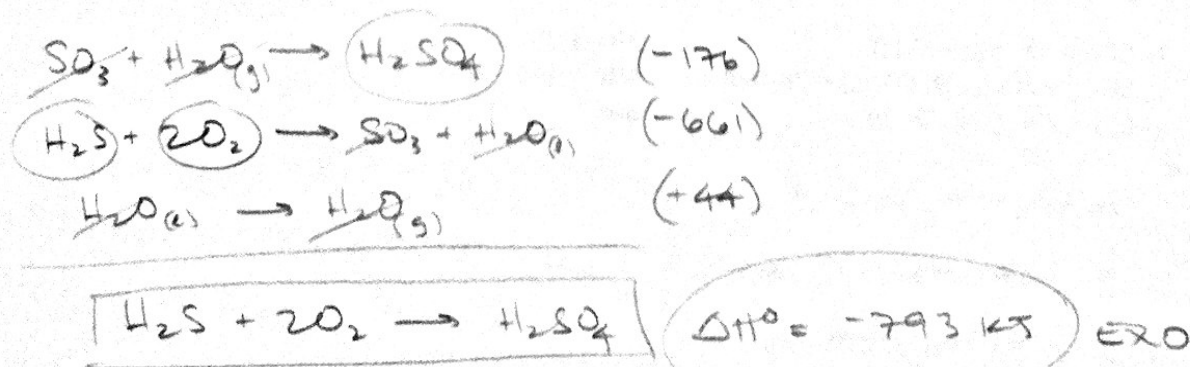 SO3 + H2O(g) → H2SO4 (-176)
H2S + 2O2 → SO3 + H2O(l) (-661)
H2O(l) → H2O(g) (+44)
H2S + 2O2 → H2SO4 ΔH° = -793 KJ EXO